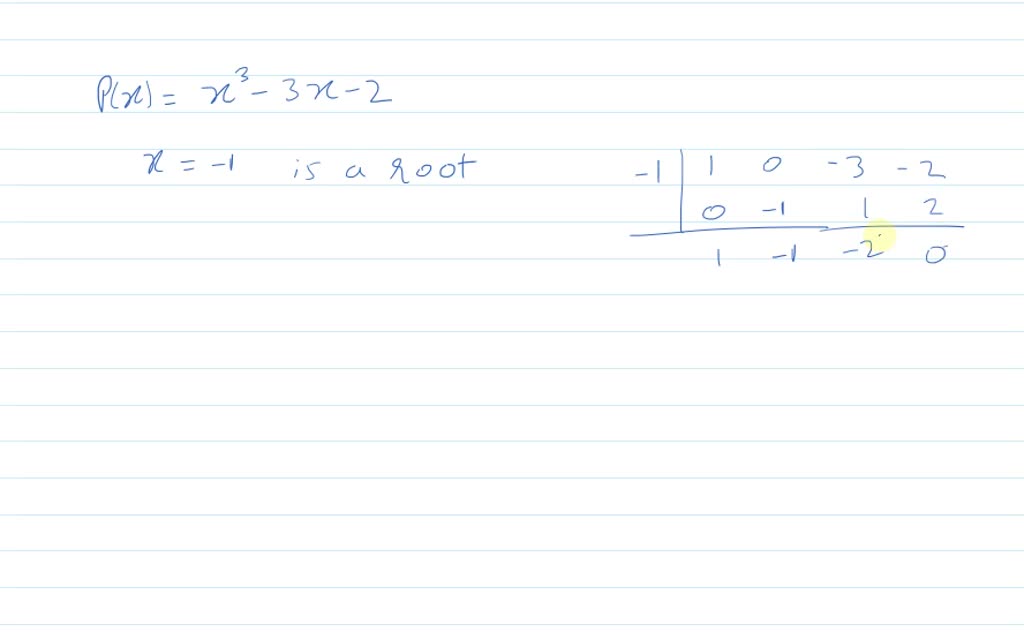 P(x) = x³ - 3x - 2
x = -1 is a root
-1 | 1 0 -3 -2
0 -1 1 2
1 -1 -2 0